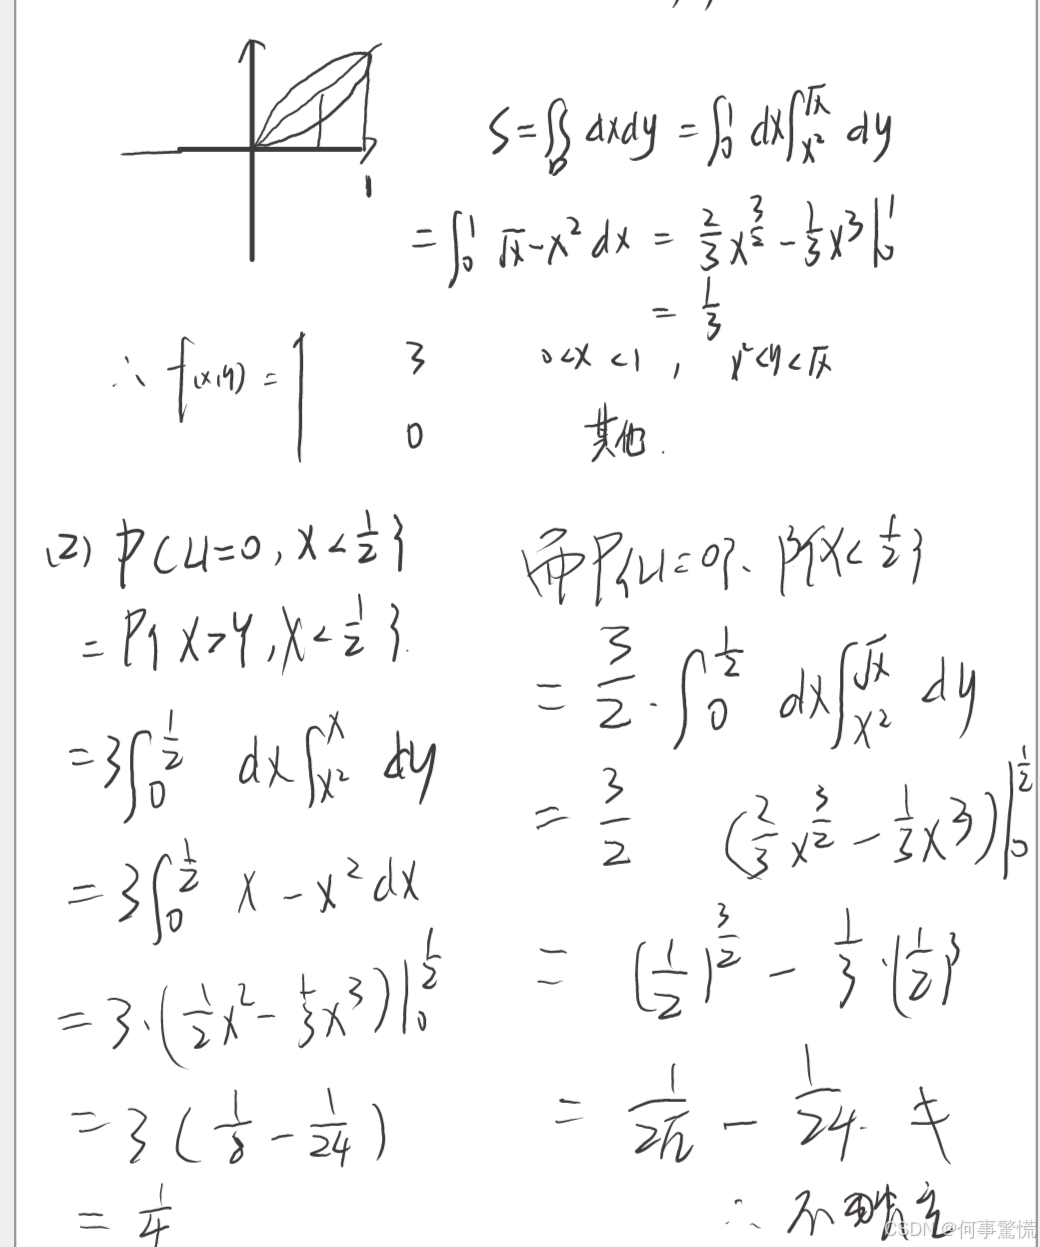 1
S=∬_D dxdy = ∫_0^1 dx∫_{x²}^{√x} dy
= ∫_0^1 √x-x² dx = 2/3 x^{3/2} - 1/3 x³ |_0^1
= 1/3
∴ f(x,y) = { 3 0<x<1, x²<y<√x
0 其他.
(2) P{U=0, X<1/2}
= P{X>Y, X<1/2}.
= 3∫_0^{1/2} dx∫_{x²}^{x} dy
= 3∫_0^{1/2} x - x² dx
= 3·(1/2 x² - 1/3 x³)|_0^{1/2}
= 3(1/8 - 1/24)
= 1/4
而P{U=0}·P{X<1/2}
= 3/2·∫_0^{1/2} dx∫_{x²}^{√x} dy
= 3/2 (2/3 x^{3/2} - 1/3 x³)|_0^{1/2}
= (1/2)^{3/2} - 1/3·(1/2)³
= 1/2√2 - 1/24. ≠
∴ 不独立
CSDN @何事驚慌